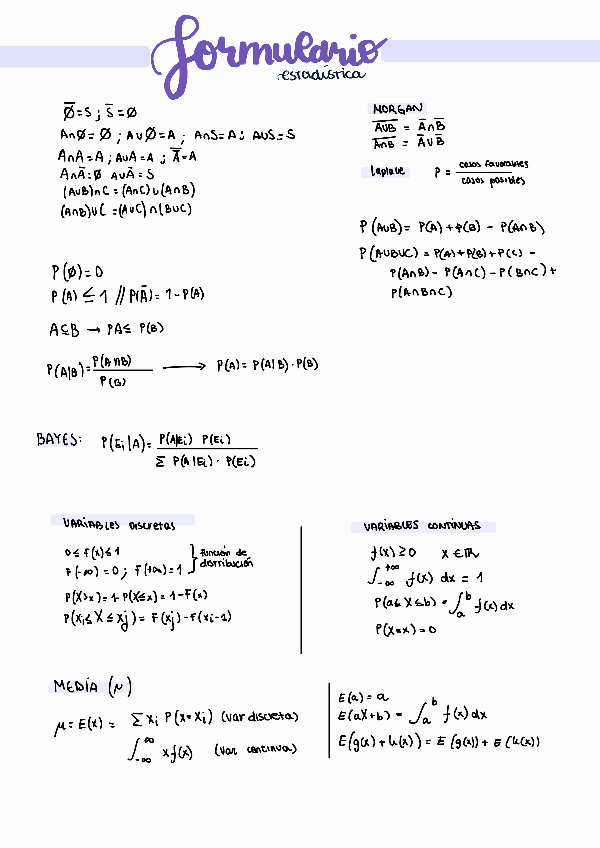 Formulario
estadística
∅̅=S ; S̅=∅
A∩∅=∅ ; A∪∅=A ; A∩S=A ; A∪S=S
A∩A=A ; A∪A=A ; A̿=A
A∩A̅=∅ A∪A̅=S
(A∪B)∩C=(A∩C)∪(A∩B)
(A∩B)∪C=(A∪C)∩(B∪C)
MORGAN
A∪B̅ = A̅∩B̅
A∩B̅ = A̅∪B̅
Laplace P = casos favorables / casos posibles
P(A∪B)= P(A)+P(B) - P(A∩B)
P(A∪B∪C)=P(A)+P(B)+P(C) -
P(A∩B)- P(A∩C)-P(B∩C)+
P(A∩B∩C)
P(∅)=0
P(A)≤1 // P(A̅)=1-P(A)
A⊆B → PA≤ P(B)
P(A|B)=P(A∩B) / P(B) → P(A)= P(A|B)·P(B)
BAYES: P(Ei|A)= P(A|Ei) P(Ei) / Σ P(A|Ei)· P(Ei)
VARIABLES DISCRETAS
0≤F(x)≤1
F(-∞)=0; F(+∞)=1 } función de distribución
P(X>x)=1-P(X≤x)=1-F(x)
P(xi≤X≤xj)= F(xj)-F(xi-1)
VARIABLES CONTINUAS
f(x)≥0 x∈ℝ
∫-∞+∞ f(x) dx = 1
P(a≤X≤b)=∫ab f(x)dx
P(X=x)=0
MEDÍA (μ)
μ=E(x)= Σxi P(x=xi) (var discreta)
∫-∞∞ xf(x) (var continua)
E(a)=a
E(aX+b)=∫ab f(x)dx
E(g(x)+h(x))=E(g(x))+E(h(x))